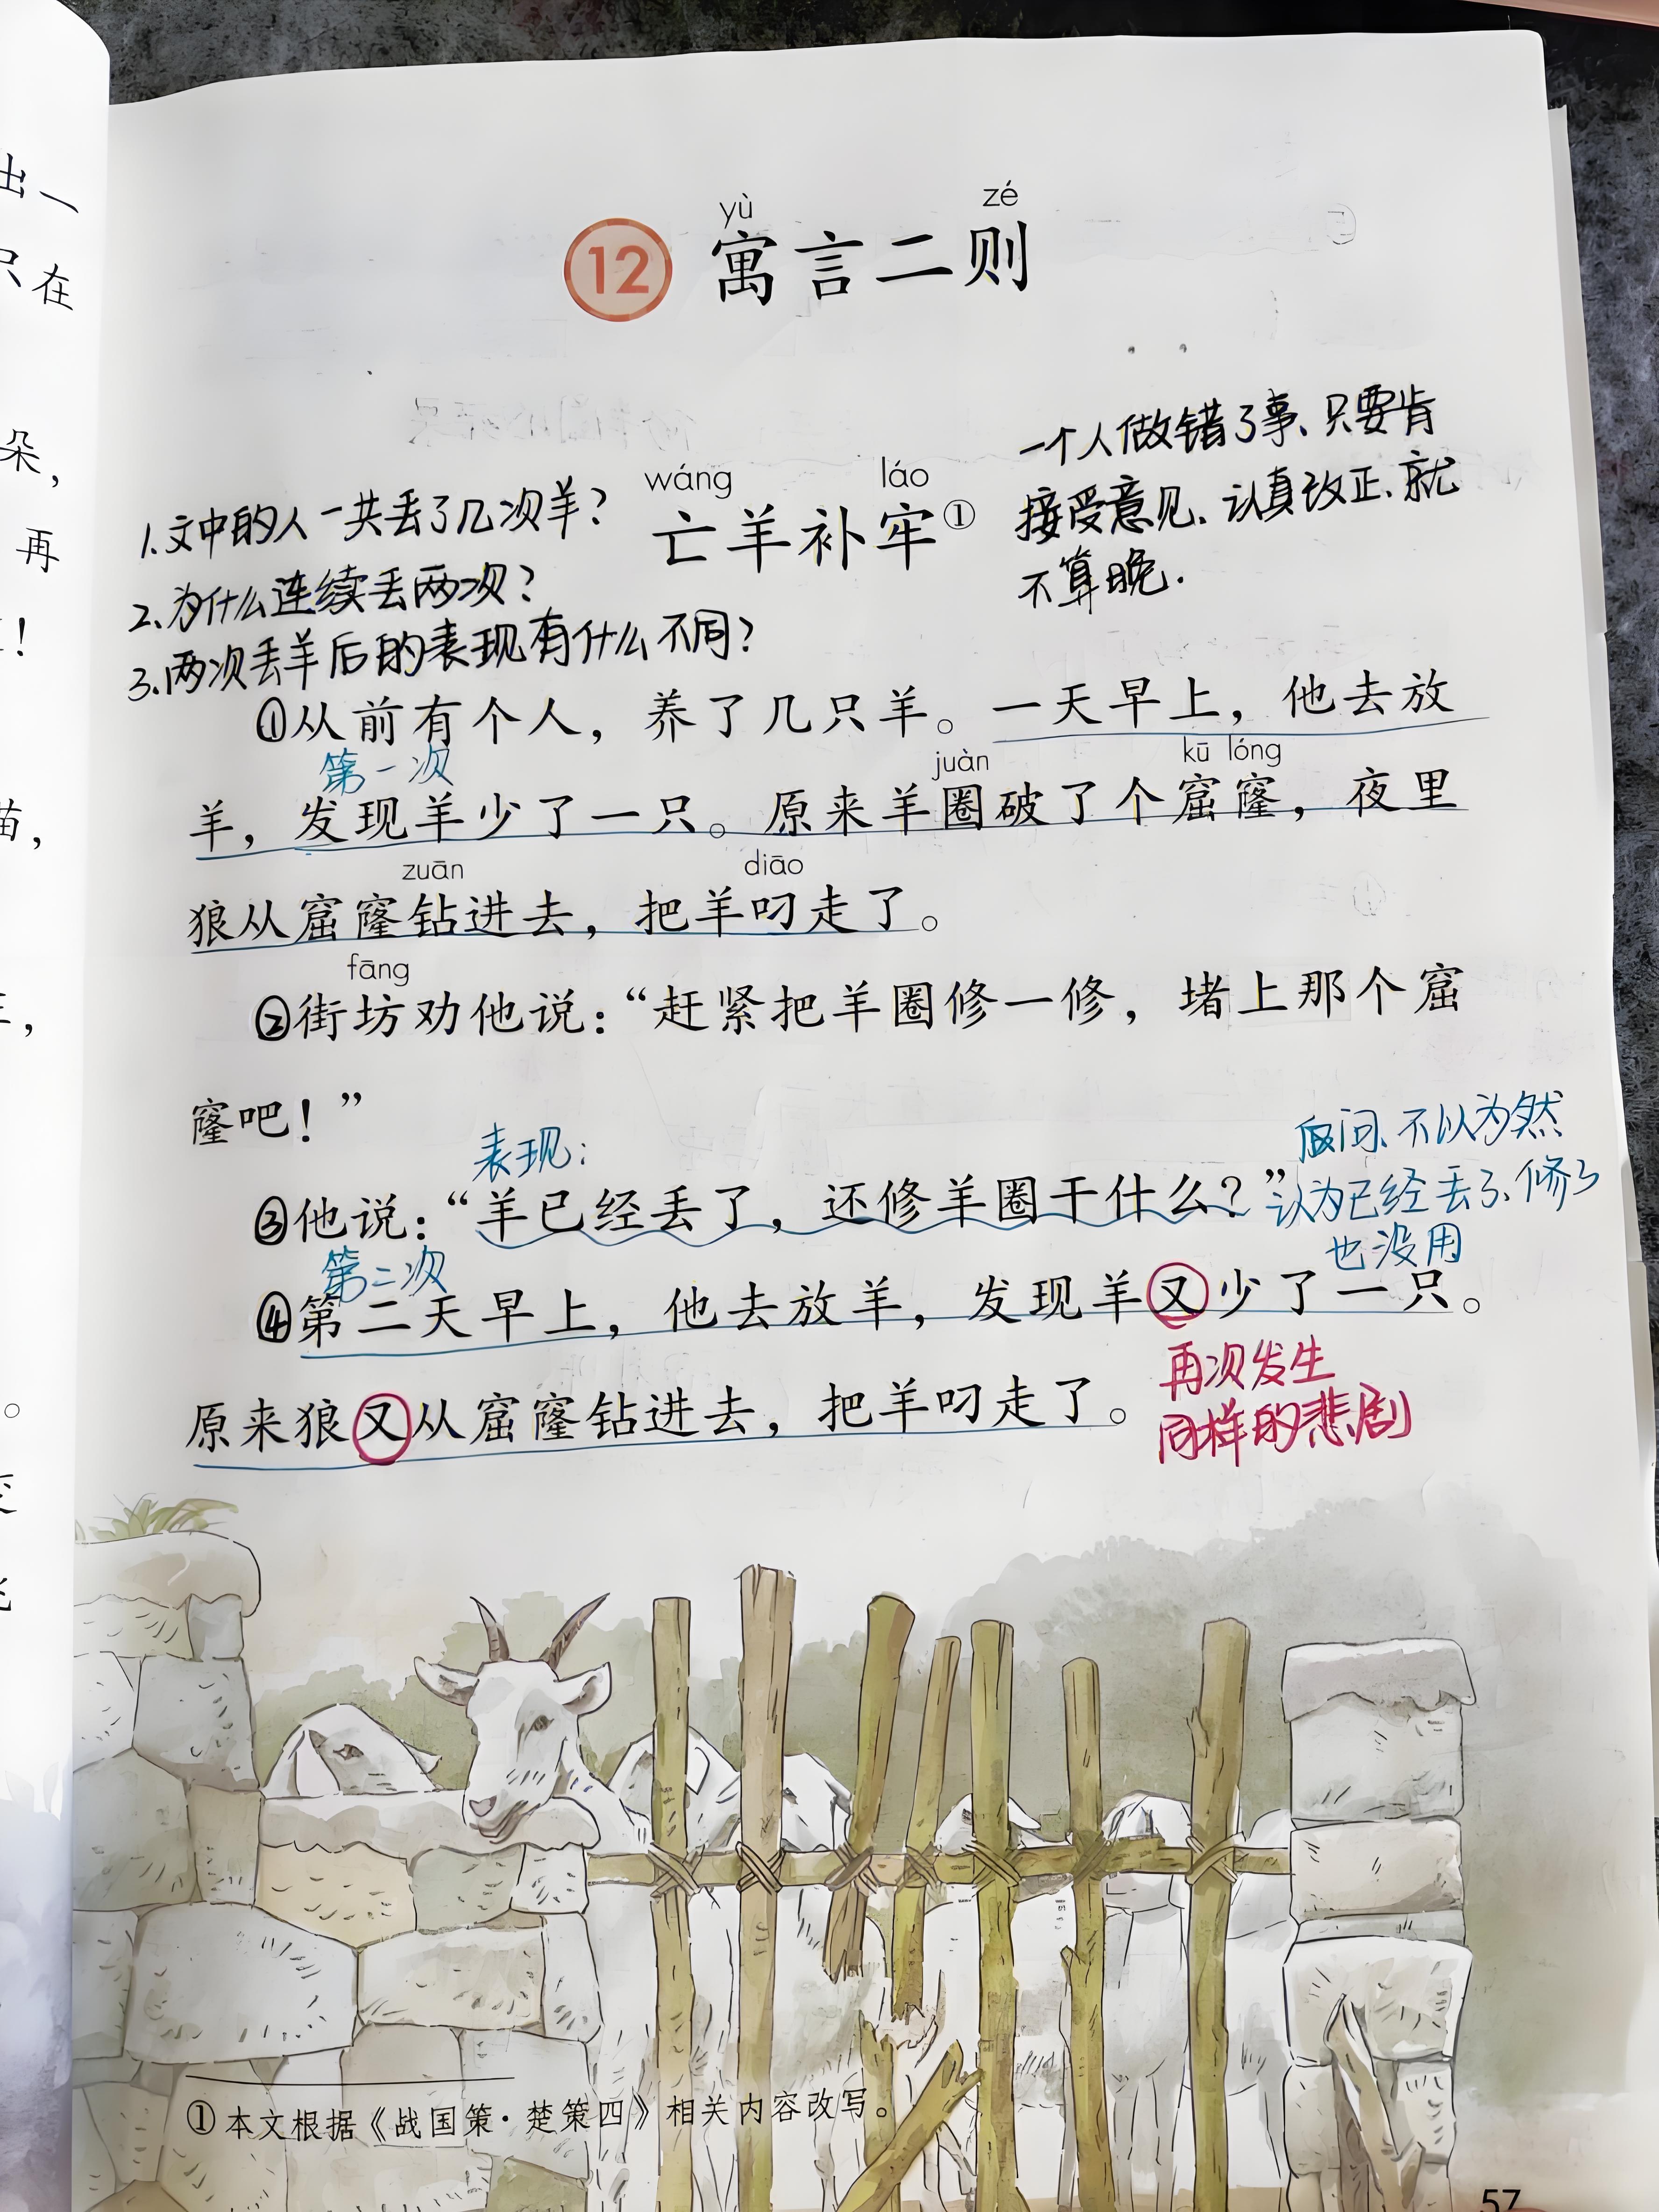 出一
只在
朵，
再
！
苗，
，
。
yù zé
12 寓言二则
一个人做错了事、只要肯
接受意见、认真改正、就
不算晚.
wáng láo
亡羊补牢①
1.文中的人一共丢了几次羊？
2.为什么连续丢两次？
3.两次丢羊后的表现有什么不同？
①从前有个人，养了几只羊。一天早上，他去放
第一次
juàn kū lóng
羊，发现羊少了一只。原来羊圈破了个窟窿，夜里
zuān diāo
狼从窟窿钻进去，把羊叼走了。
fāng
②街坊劝他说：“赶紧把羊圈修一修，堵上那个窟
窿吧！”
表现：
反问、不以为然
③他说：“羊已经丢了，还修羊圈干什么？”
认为已经丢了、修了
也没用
第二次
④第二天早上，他去放羊，发现羊又少了一只。
原来狼又从窟窿钻进去，把羊叼走了。
再次发生
同样的悲剧
①本文根据《战国策·楚策四》相关内容改写。
57